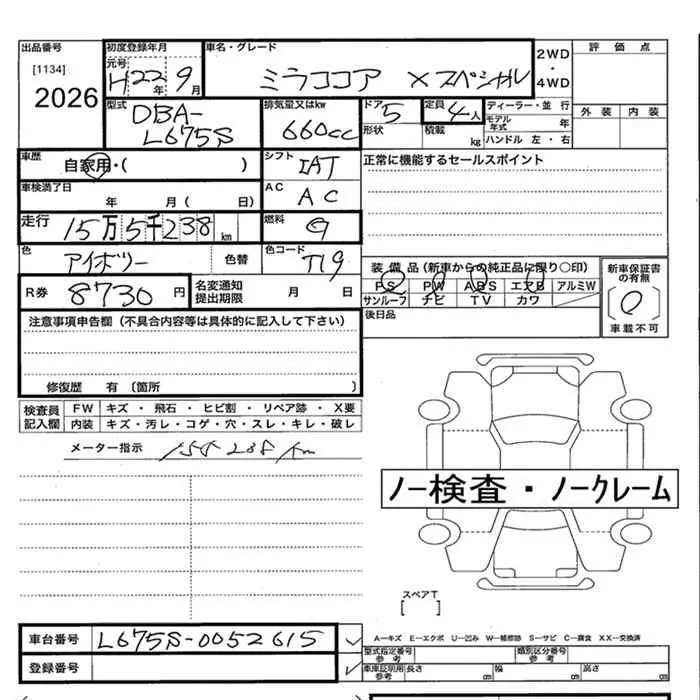 出品番号
[1134]
2026
初度登録年月
元号
H22年 9月
車名・グレード
ミラココア Xスペシャル
2WD
・
4WD
評 価 点
外 装 内 装
型式
DBA-
L675S
排気量又はkw
660cc
ドア
5
形状
定員
4人
積載
kg
ディーラー・並 行
モデル年式
年
ハンドル 左 ・ 右
車歴
自家用・( )
シフト
IAT
正常に機能するセールスポイント
車検満了日
年 月( 日)
AC
AC
走行
15万5千238km
燃料
G
色
アイボリー
色替
色コード
T19
装 備 品 (新車からの純正品に限り○印)
PS PW ABS エアB アルミW
サンルーフ ナビ TV カワ
新車保証書の有無
車載不可
R券
8730円
名変通知
提出期限
月 日
後日品
注意事項申告欄(不具合内容等は具体的に記入して下さい)
修復歴 有 〔箇所 〕
検査員
記入欄
FW キズ ・ 飛石 ・ ヒビ割 ・ リペア跡 ・ X要
内装 キズ・汚レ・コゲ・穴・スレ・キレ・破レ
メーター指示
ノー検査・ノークレーム
スペアT
[ ]
車台番号
L675S-0052615
登録番号
A—キズ E—エクボ U—凹み W—補修跡 S—サビ C—腐食 XX—交換済
型式指定番号
参考
類別区分番号
参考
車庫証明用
参考
長さ cm 幅 cm 高さ cm